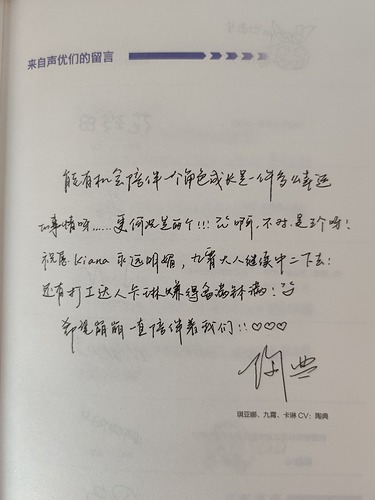 来自声优们的留言
能有机会陪伴一个角色成长是一件多么幸运
的事情呀……更何况是两个!!! 啊,不对,是三个呀!
祝愿Kiana永远明媚,九霄大人继续中二下去!
还有打工达人卡琳赚得盆满钵满!
希望崩崩一直陪伴着我们!!♡♡♡
陶典
琪亚娜、九霄、卡琳 CV:陶典